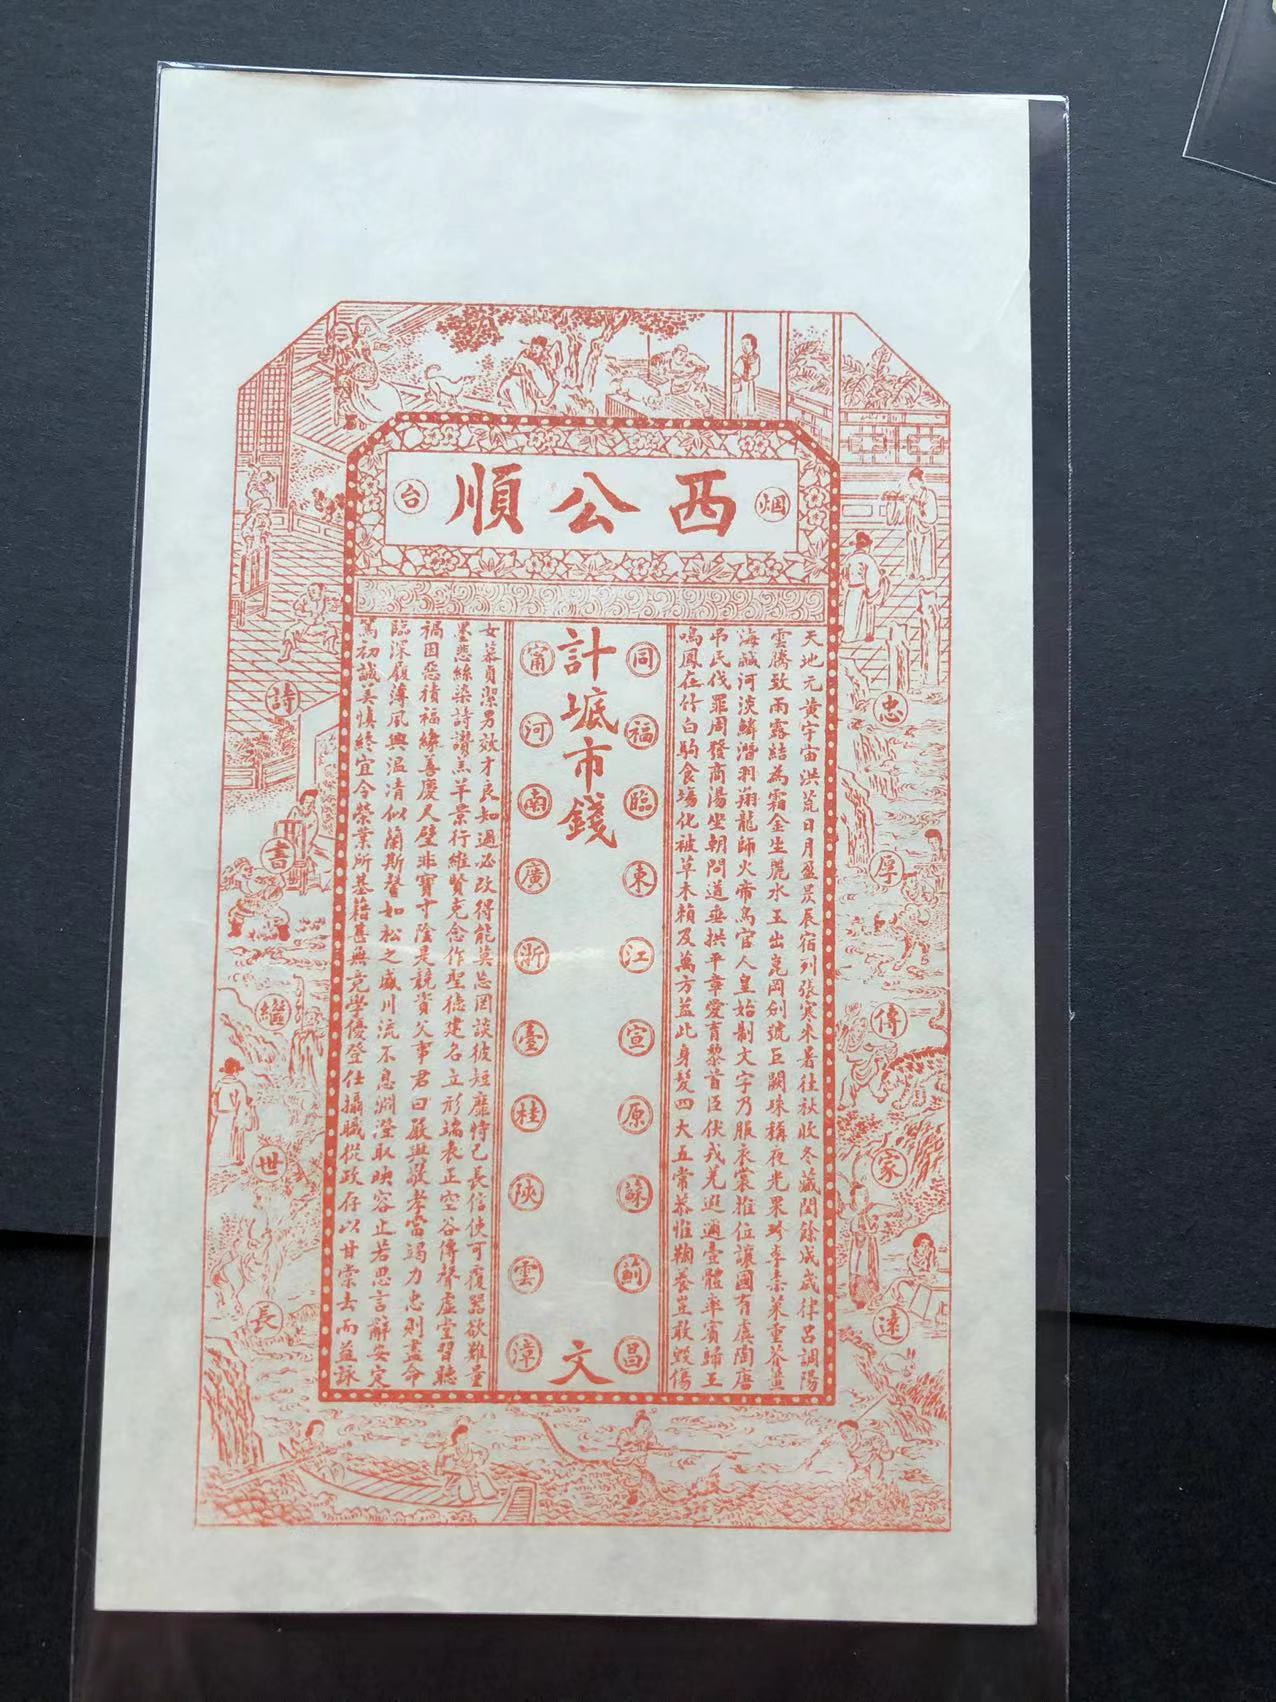 烟
西公順
台
天地元黃宇宙洪荒日月盈昃辰宿列張寒来暑往秋收冬藏閏餘成歲律呂調陽
雲騰致雨露結為霜金生麗水玉出崑岡劍號巨闕珠稱夜光果珍李柰菜重芥薑
海鹹河淡鱗潛羽翔龍師火帝鳥官人皇始制文字乃服衣裳推位讓國有虞陶唐
吊民伐罪周發商湯坐朝問道垂拱平章愛育黎首臣伏戎羌遐邇壹體率賓歸王
鳴鳳在竹白駒食場化被草木賴及萬方盖此身髮四大五常恭惟鞠養豈敢毀傷
同福臨東江宣原蘇薊昌
計市錢
文
甯河南廣浙臺桂陝雲漳
女慕貞潔男效才良知過必改得能莫忘罔談彼短靡恃己長信使可覆器欲難量
墨悲絲染詩讚羔羊景行維賢克念作聖德建名立形端表正空谷傳聲虛堂習聽
禍因惡積福緣善慶尺璧非寶寸陰是競資父事君曰嚴與敬孝當竭力忠則盡命
臨深履薄夙興溫凊似蘭斯馨如松之盛川流不息淵澄取映容止若思言辭安定
篤初誠美慎終宜令榮業所基藉甚無竟學優登仕攝職從政存以甘棠去而益詠
忠厚傳家遠
詩書繼世長